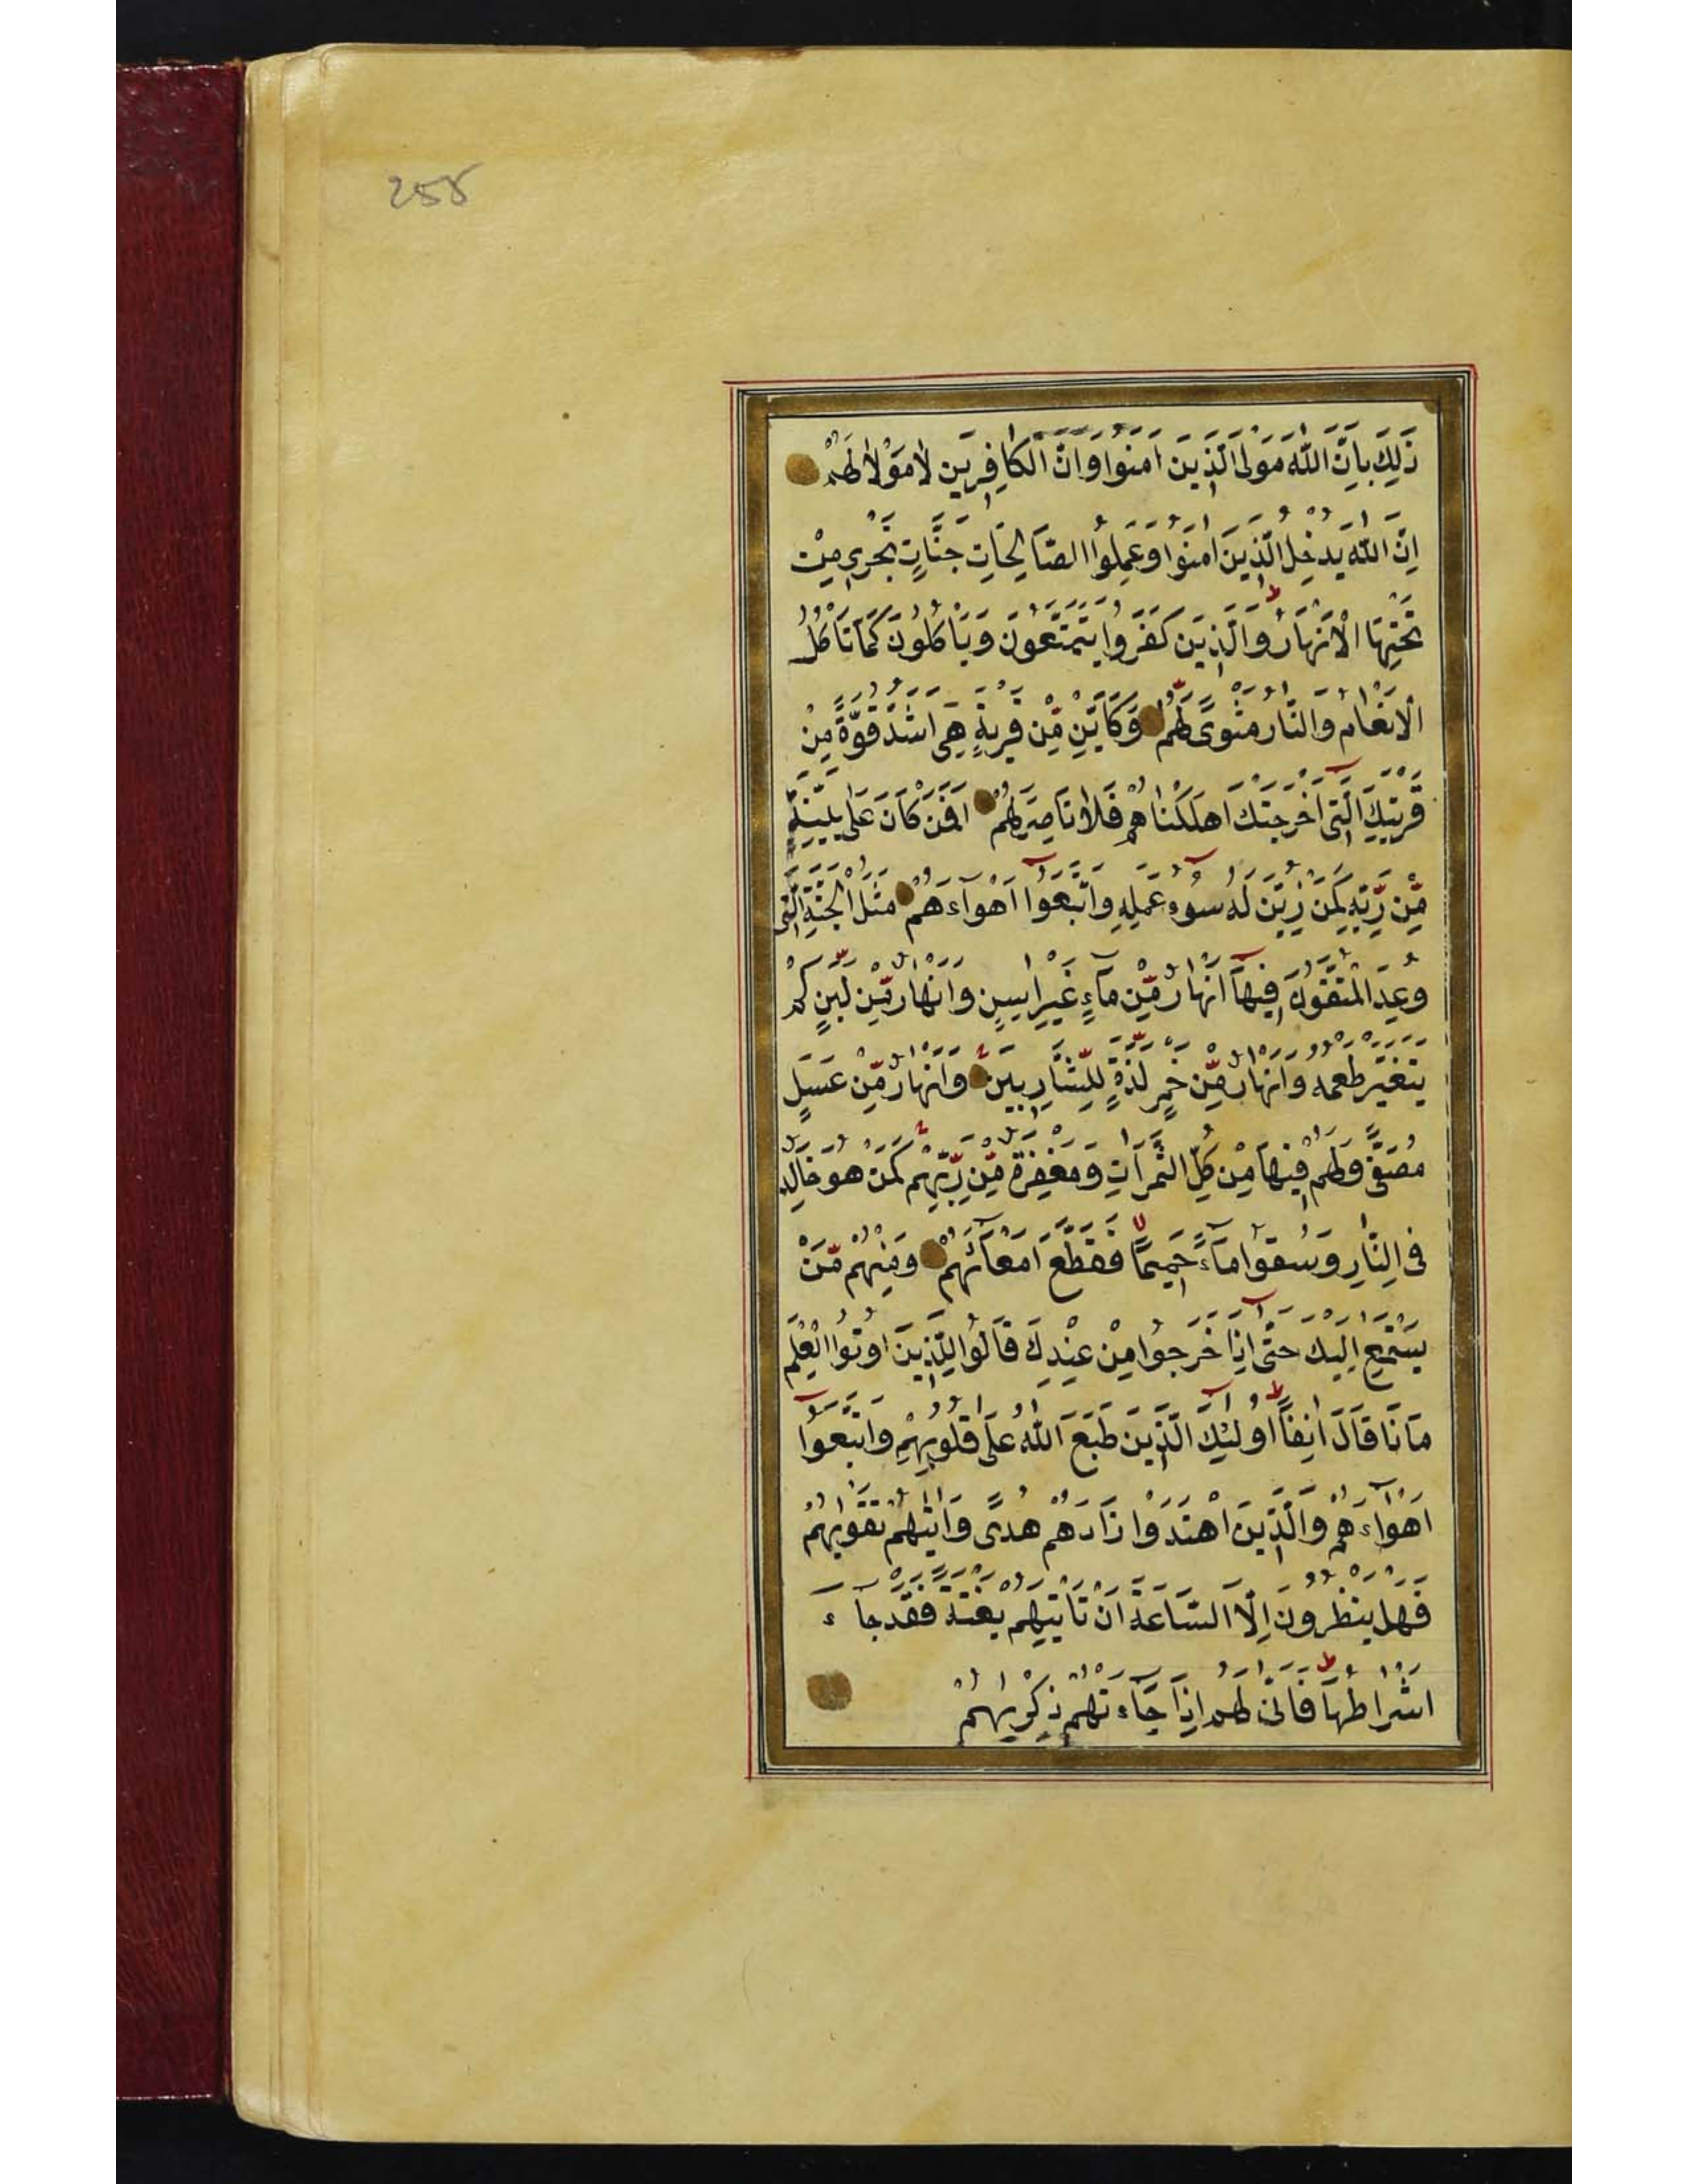 255
ذَلِكَ بِاَنَّ اللّٰهَ مَوْلَى الَّذِيَن اٰمَنُوا وَاَنَّ الْكَافِرِيَن لَا مَوْلَا لَهُمْ
اِنَّ اللّٰهَ يُدْخِلُ الَّذِينَ اٰمَنُوا وَعَمِلُوا الصَّالِحَاتِ جَنَّاتٍ تَجْرِى مِنْ
تَحْتِهَا الْاَنْهَارُ وَالَّذِيَن كَفَرُوا يَتَمَتَّعُونَ وَيَاْكُلُونَ كَمَا تَاْكُلُ
الْاَنْعَامُ وَالنَّارُ مَثْوىً لَّهُمْ وَكَاَيِّنْ مِّنْ قَرْيَةٍ هِىَ اَشَدُّ قُوَّةً مِنْ
قَرْيَتِكَ الَّتِى اَخْرَجَتْكَ اَهْلَكْنَاهُمْ فَلَا نَاصِرَ لَهُمْ اَفَمَنْ كَانَ عَلٰى بَيِّنَةٍ
مِّنْ رَّبِّهِ كَمَنْ زُيِّنَ لَهُ سُوٓءُ عَمَلِهِ وَاتَّبَعُوٓا اَهْوَآءَهُمْ مَثَلُ الْجَنَّةِ الَّتِى
وُعِدَ الْمُتَّقُونَ فِيهَآ اَنْهَارٌ مِّنْ مَآءٍ غَيْرِ اٰسِنٍ وَاَنْهَارٌ مِّنْ لَّبَنٍ لَمْ
يَتَغَيَّرْ طَعْمُهُ وَاَنْهَارٌ مِّنْ خَمْرٍ لَّذَّةٍ لِّلشَّارِبِينَ وَاَنْهَارٌ مِّنْ عَسَلٍ
مُصَفًّى وَلَهُمْ فِيهَا مِنْ كُلِّ الثَّمَرَاتِ وَمَغْفِرَةٌ مِّنْ رَّبِّهِمْ كَمَنْ هُوَ خَالِدٌ
فِى النَّارِ وَسُقُوا مَآءً حَمِيمًا فَقَطَّعَ اَمْعَآئَهُمْ وَمِنْهُمْ مَّنْ
يَسْتَمِعُ اِلَيْكَ حَتّٰىٓ اِذَا خَرَجُوا مِنْ عِنْدِكَ قَالُوا لِلَّذِينَ اُوتُوا الْعِلْمَ
مَاذَا قَالَ اٰنِفًا اُولٰٓئِكَ الَّذِينَ طَبَعَ اللّٰهُ عَلٰى قُلُوبِهِمْ وَاتَّبَعُوٓا
اَهْوَآءَهُمْ وَالَّذِينَ اهْتَدَوْا زَادَهُمْ هُدًى وَاٰتٰيهُمْ تَقْوٰيهُمْ
فَهَلْ يَنْظُرُونَ اِلَّا السَّاعَةَ اَنْ تَاْتِيَهُمْ بَغْتَةً فَقَدْ جَآءَ
اَشْرَاطُهَا فَاَنّٰى لَهُمْ اِذَا جَآءَتْهُمْ ذِكْرٰيهُمْ